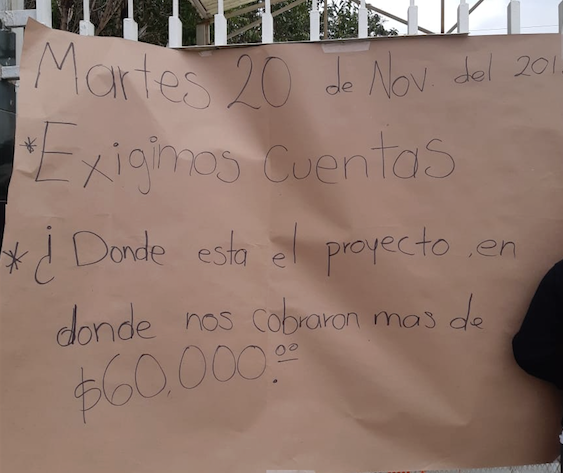 Martes 20 de Nov. del 201
*Exigimos cuentas
*¿Donde esta el proyecto, en
donde nos cobraron mas de
$60,000.⁰⁰